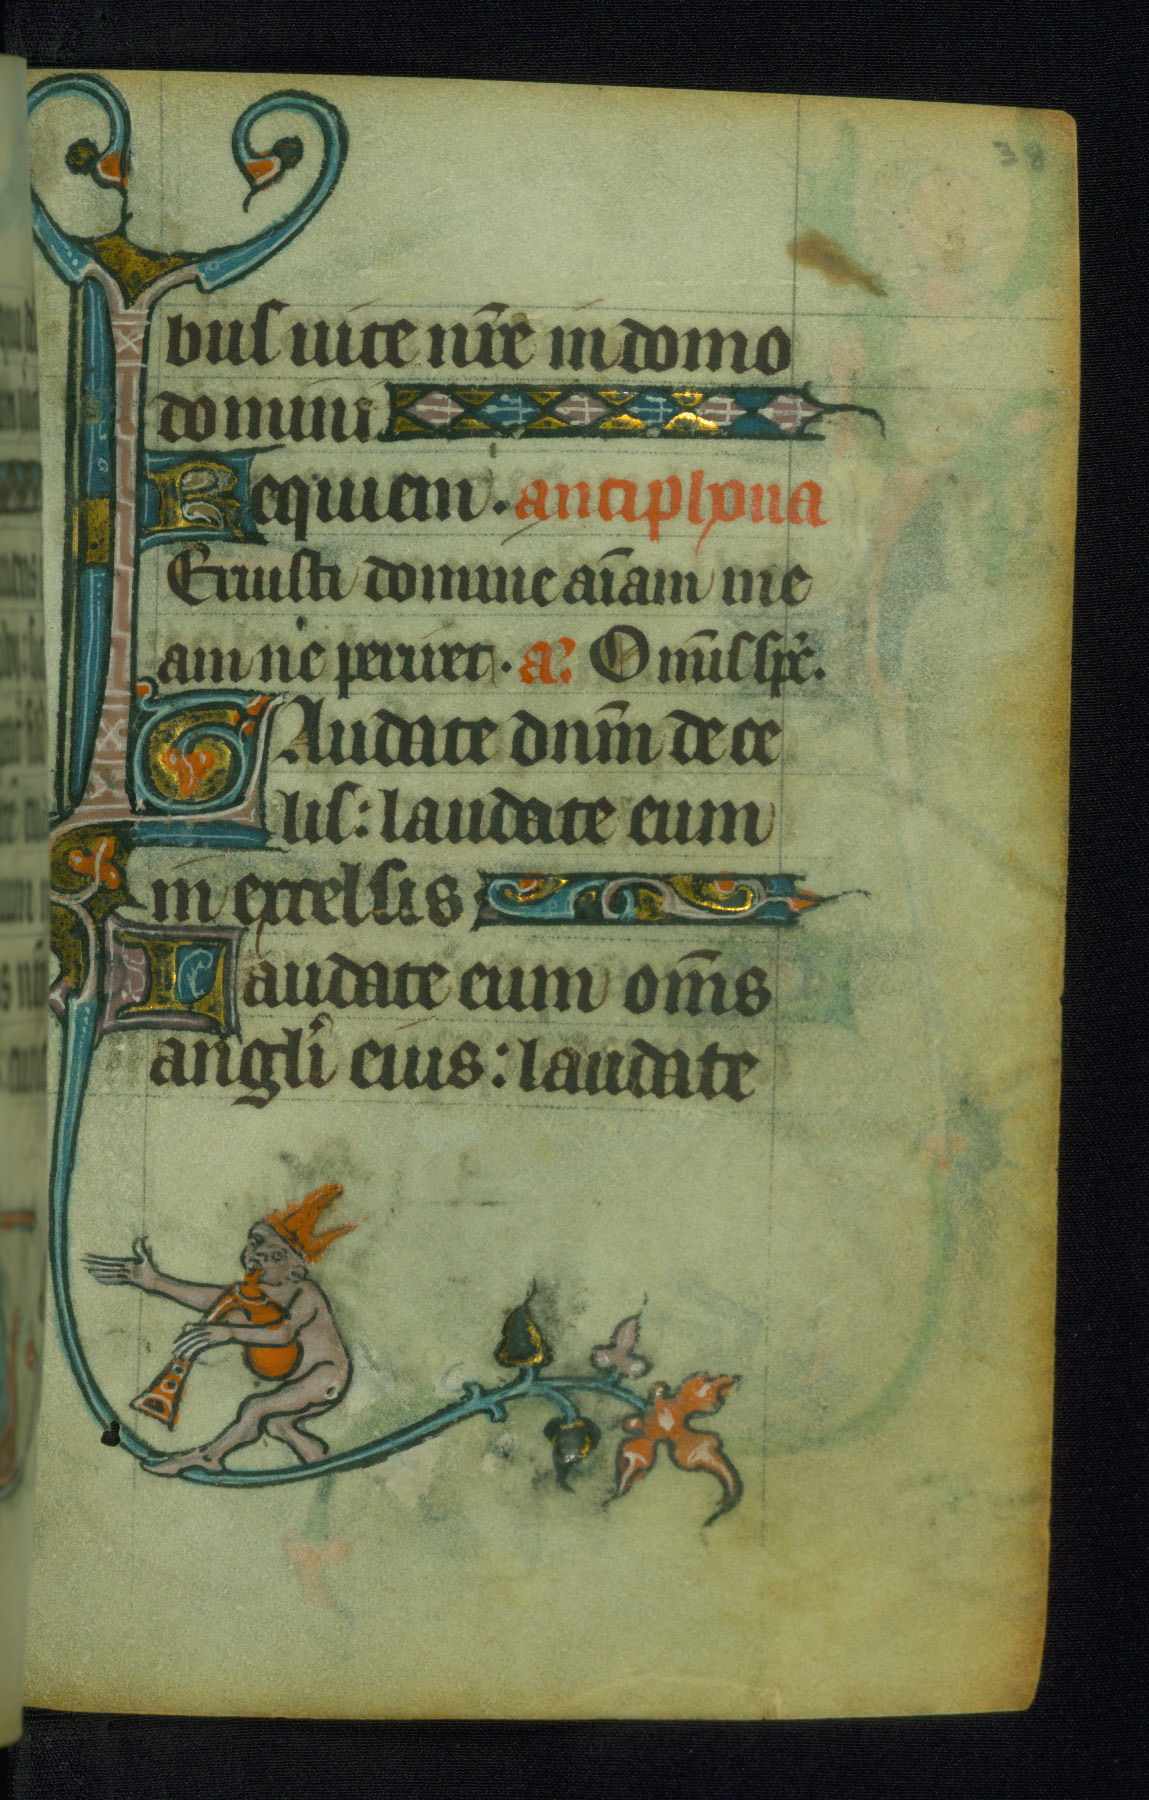 38
bus uite nr̄e in domo
domini
Requiem. antiphona
Eruisti domine aīam me
am ne periret. a᷒. Omīs sp̄c.
Laudate dn̄m de ce
lis: laudate eum
in excelsis
Laudate eum om̄s
angl̄i eius: laudate